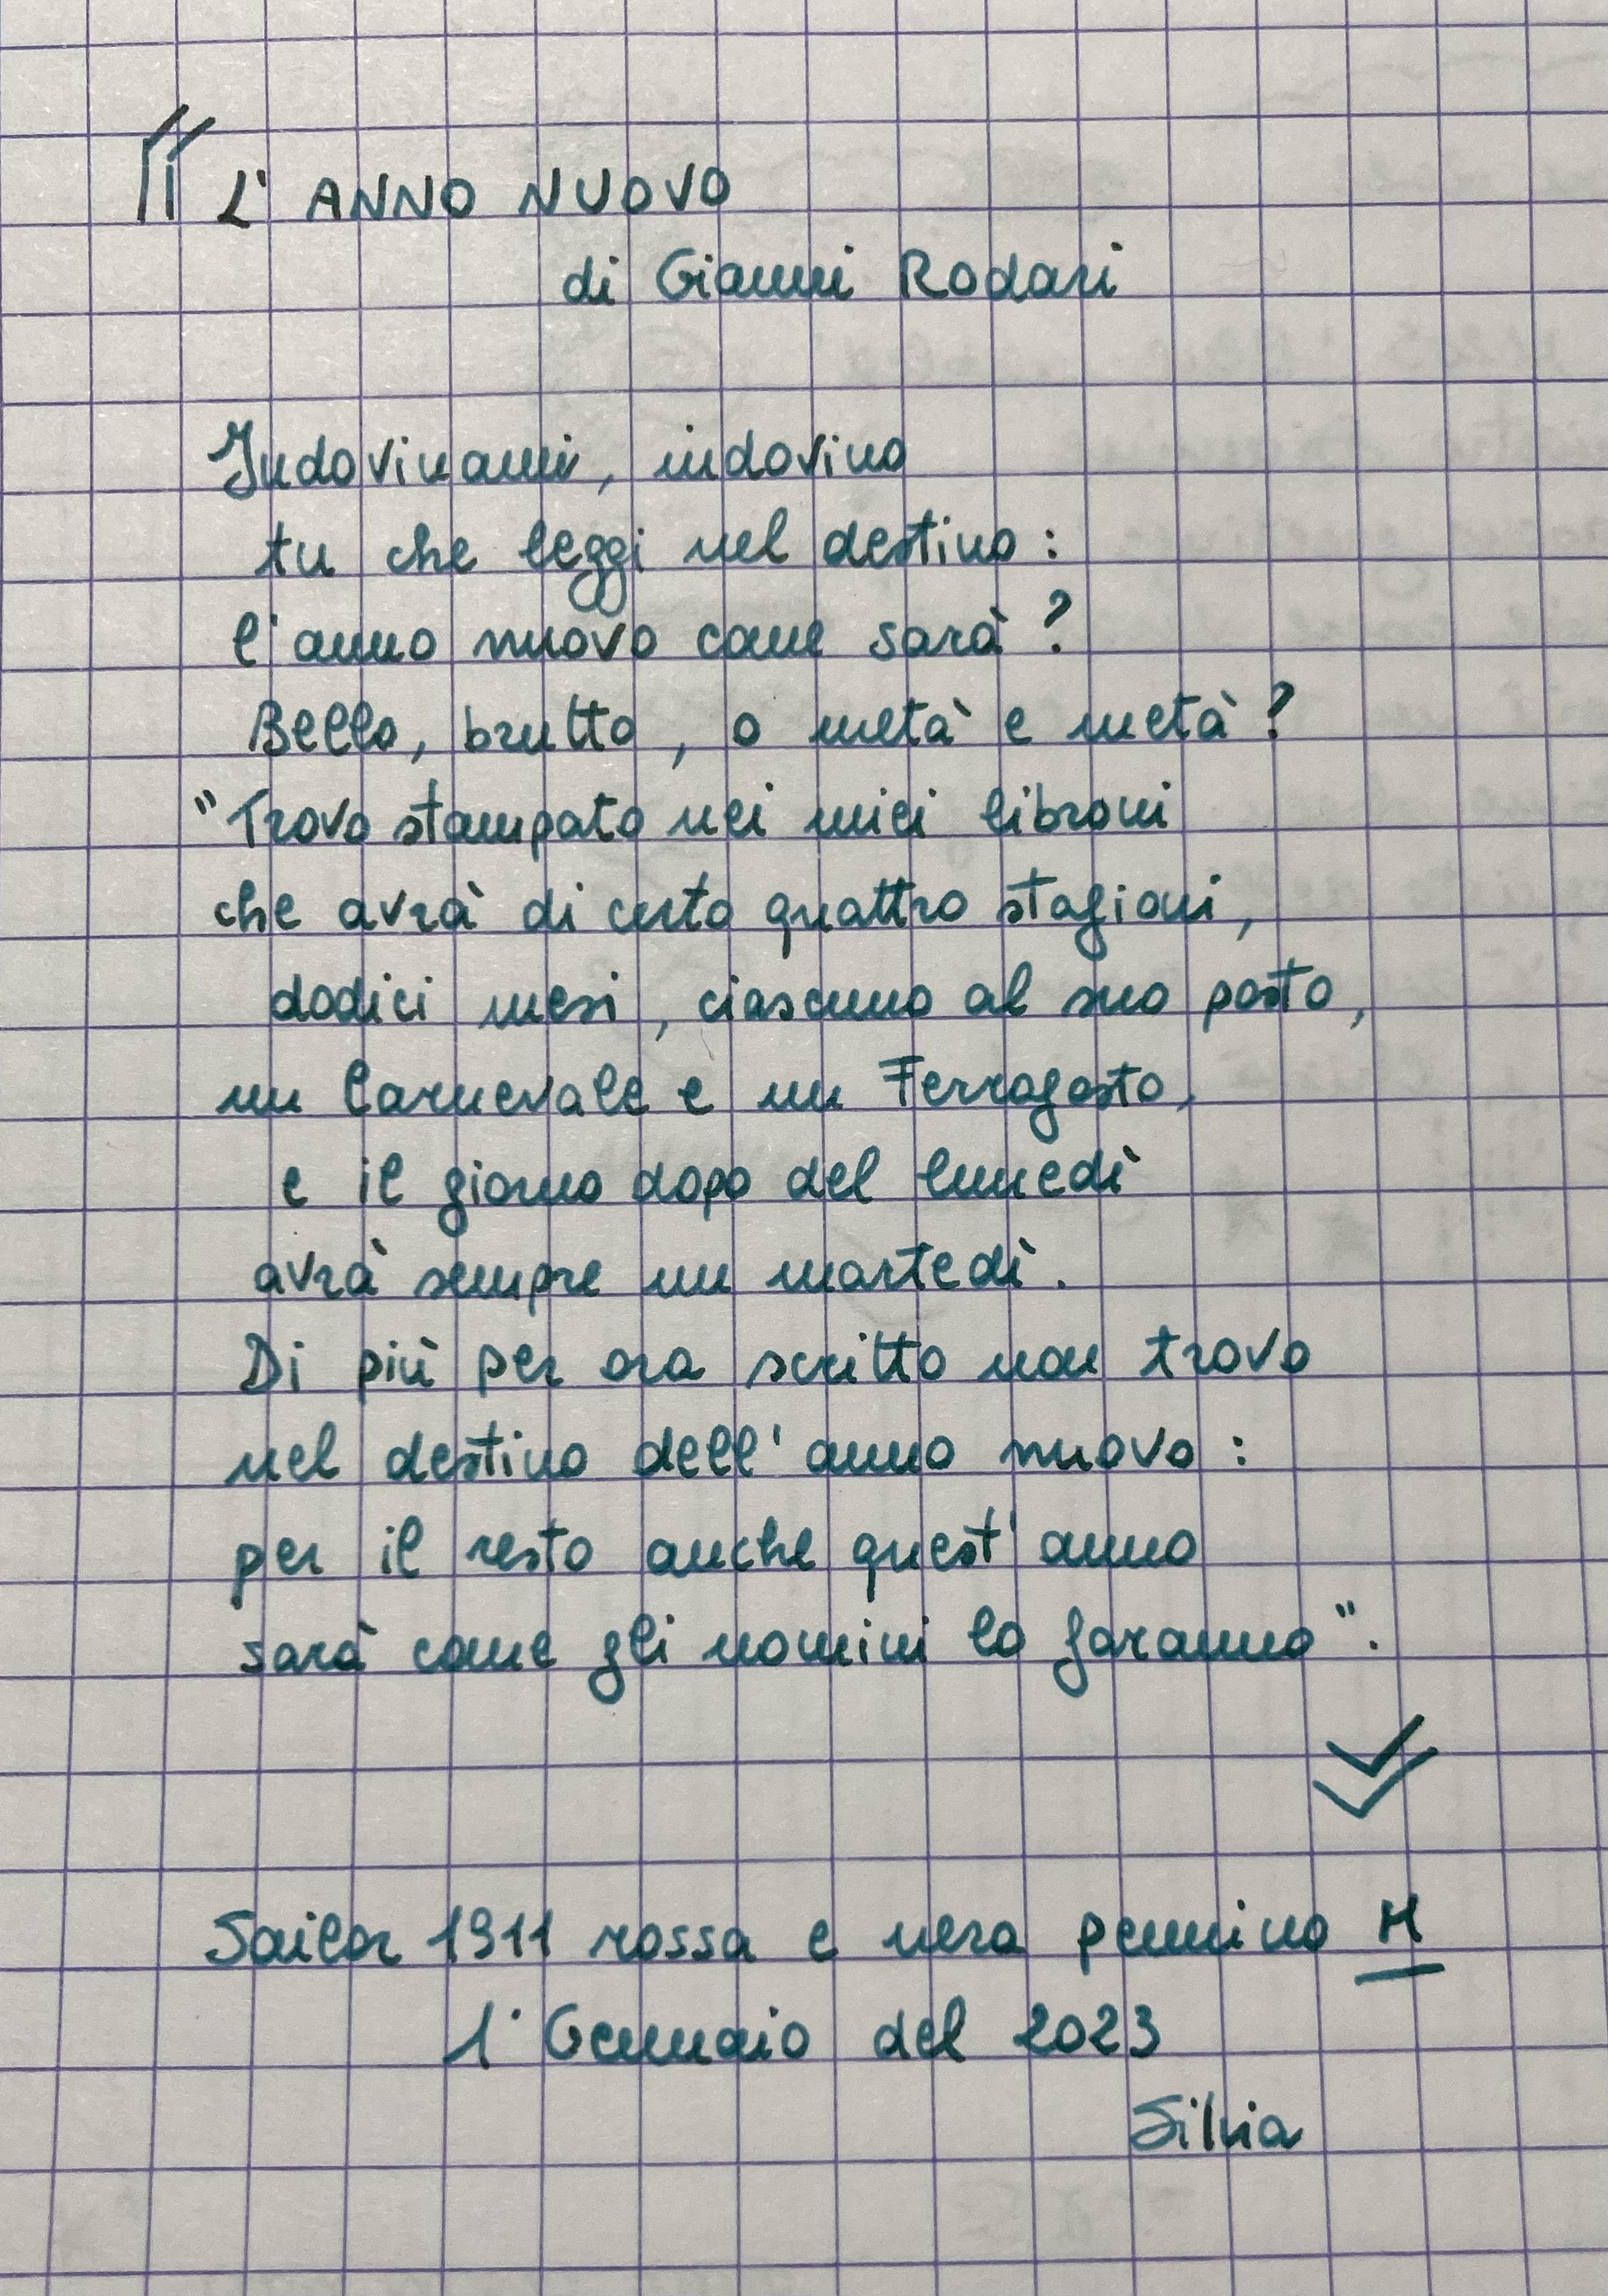 “ L'ANNO NUOVO
di Gianni Rodari
Indovinami, indovino
tu che leggi nel destino:
l'anno nuovo come sarà?
Bello, brutto, o metà e metà?
"Trovo stampato nei miei libroni
che avrà di certo quattro stagioni,
dodici mesi, ciascuno al suo posto,
un Carnevale e un Ferragosto,
e il giorno dopo del lunedì
avrà sempre un martedì.
Di più per ora scritto non trovo
nel destino dell'anno nuovo:
per il resto anche quest'anno
sarà come gli uomini lo faranno".
”
Sailor 1911 rossa e nera pennino M
1° Gennaio del 2023
Silvia